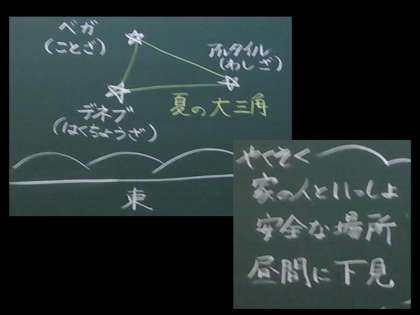 ベガ
(ことざ)
アルタイル
(わしざ)
デネブ
(はくちょうざ)
夏の大三角
東
やくそく
家の人といっしょ
安全な場所
昼間に下見